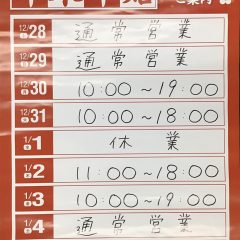 年末年始 ご案内
12/28 通常営業
12/29 通常営業
12/30 10:00～19:00
12/31 10:00～18:00
1/1 休業
1/2 11:00～18:00
1/3 10:00～19:00
1/4 通常営業